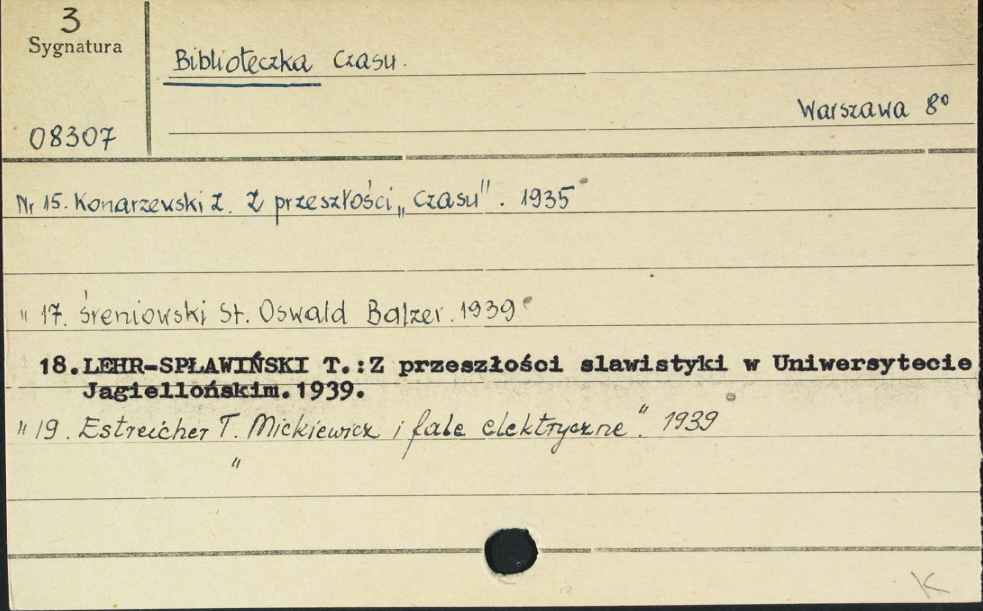 3
Sygnatura
Biblioteczka Czasu.
Warszawa 8°
08307
Nr 15. Konarzewski Z. Z przeszłości „Czasu". 1935
" 17. Śreniowski St. Oswald Balzer. 1939
18. LEHR-SPŁAWIŃSKI T.: Z przeszłości slawistyki w Uniwersytecie
Jagiellońskim. 1939.
" 19. Estreicher T. Mickiewicz i fale elektryczne". 1939
"
K